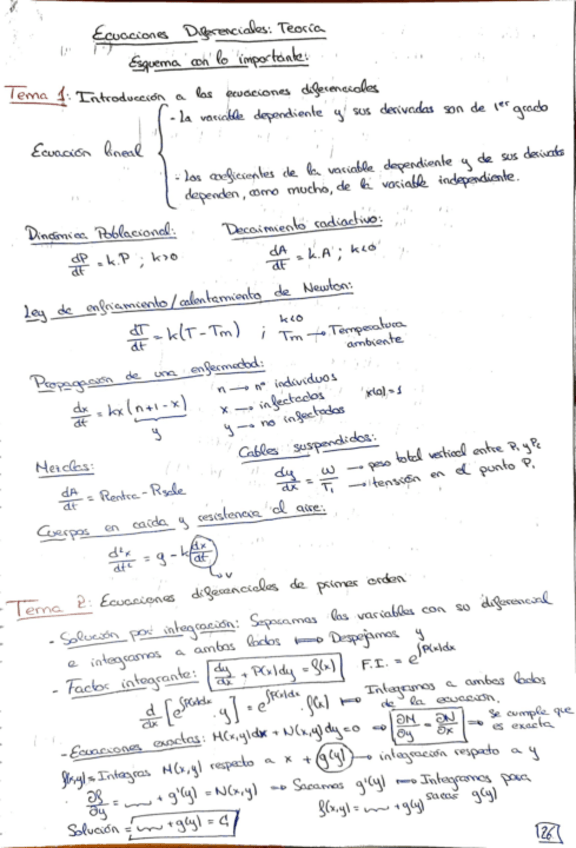 Ecuaciones Diferenciales: Teoría
Esquema con lo importante:
Tema 1: Introducción a las ecuaciones diferenciales
Ecuación lineal
- La variable dependiente y sus derivadas son de 1er grado
- Los coeficientes de la variable dependiente y de sus derivadas
dependen, como mucho, de la variable independiente.
Dinámica Poblacional:
dP/dt = k.P ; k>0
Decaimiento radiactivo:
dA/dt = k.A ; k<0
Ley de enfriamiento/calentamiento de Newton:
dT/dt = k(T-Tm) ; k<0 Tm → Temperatura
ambiente
Propagación de una enfermedad:
dx/dt = kx(n+1-x)
y
n → nº individuos
x → infectados
y → no infectados
x(0)=1
Mezclas:
dA/dt = Rentra - Rsale
Cables suspendidos:
dy/dx = W/T₁ → peso total vertical entre P₁ y P₂
→ tensión en el punto P₁
Cuerpos en caída y resistencia al aire:
d²x/dt² = g - k dx/dt
v
Tema 2: Ecuaciones diferenciales de primer orden
- Solución por integración: Separamos las variables con su diferencial
e integramos a ambos lados ⟹ Despejamos y
- Factor integrante: dy/dx + P(x)dy = f(x) F.I. = e^∫P(x)dx
d/dx [e^∫P(x)dx · y] = e^∫P(x)dx · f(x) ⟹ Integramos a ambos lados
de la ecuación.
- Ecuaciones exactas: M(x,y)dx + N(x,y)dy=0 ⟹ ∂M/∂y = ∂N/∂x ⟹ Se cumple que
es exacta
f(x,y) = Integras M(x,y) respecto a x + g(y) → integración respecto a y
∂f/∂y = ~~ + g'(y) = N(x,y) ⟹ Sacamos g'(y) ⟹ Integramos para
sacar g(y)
f(x,y) = ~~ + g(y)
Solución = ~~ + g(y) = C₁
26